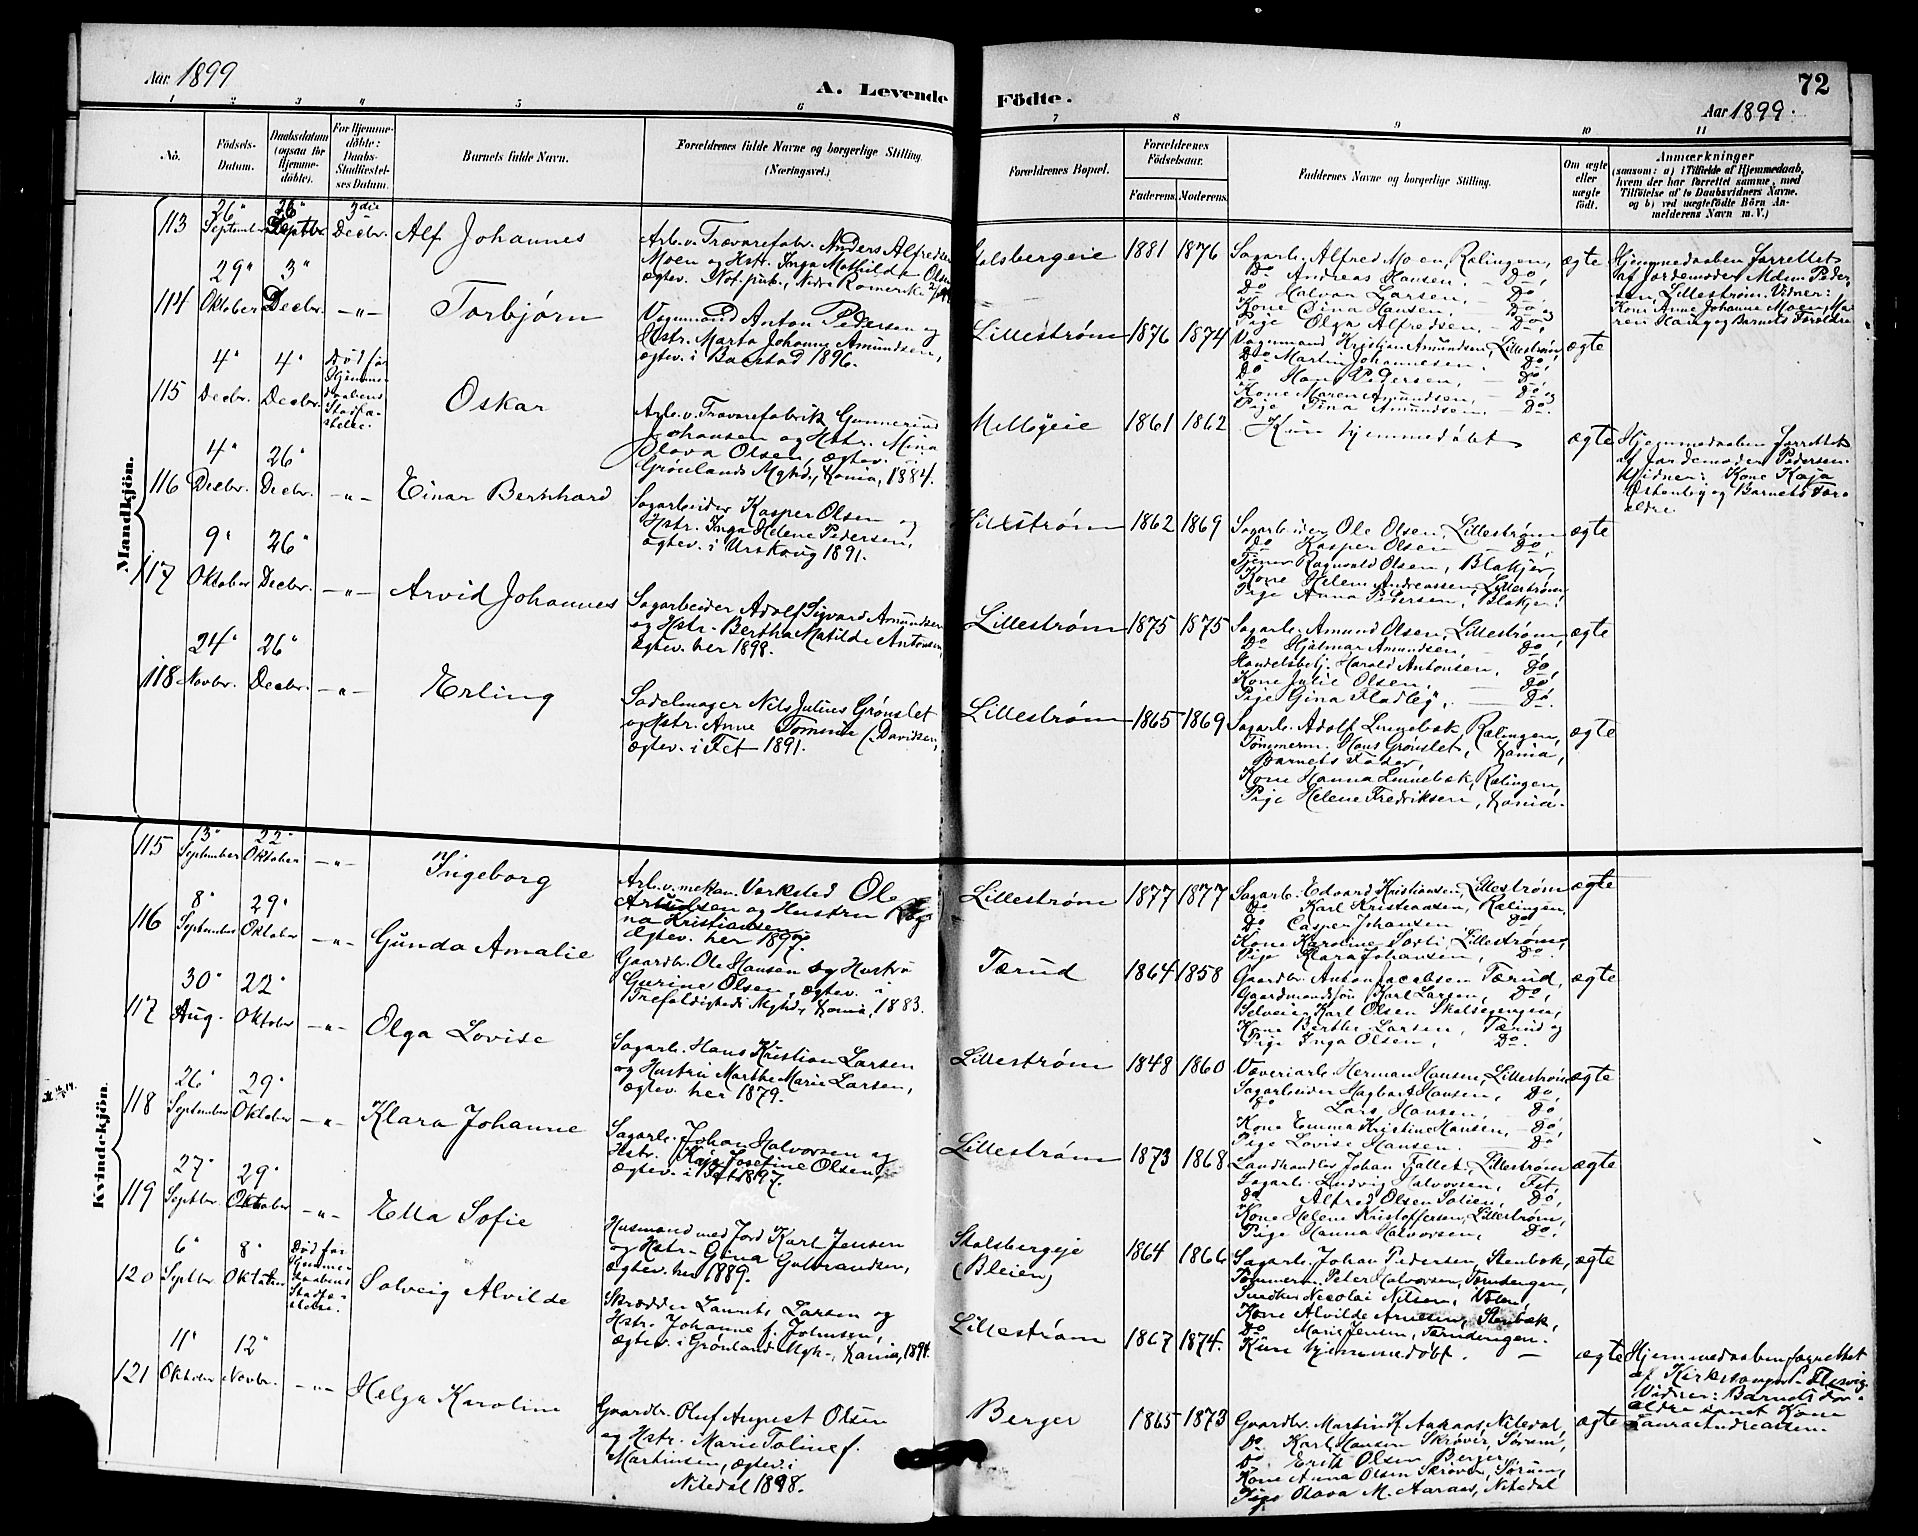 Aar 1899
A. Levende Födte.
72
Aar 1899.
1 2 3 4 5 6 7 8 9 10 11
No.
Födsels-Datum.
Daabsdatum (ogsaa for Hjemmedöbte).
For Hjemmedöbte: Daabs-Stadfæstelses Datum.
Barnets fulde Navn.
Forældrenes fulde Navne og borgerlige Stilling. (Næringsvei.)
Forældrenes Bopæl.
Forældrenes Födselsaar.
Faderens
Moderens
Faddernes Navne og borgerlige Stilling.
Om ægte eller uægte födt.
Anmærkninger
(saasom: a) i Tilfælde af Hjemmedaab, hvem der har forrettet samme, med Tilföielse af to Daabsvidners Navne. og b) ved uægtefödte Börn Anmelderens Navn m. V.)
Mandkjön.
113
26" September
26" Septbr
3die Decbr.
Alf Johannes
Arb. v. Trævarefabr. Anders Alfredsen
Moen og Hstr. Inga Mathilde Olsen
ægtev. Not. pub., Nedre Romerik
1881 1876
Sagarb. Alfred Moen, Rælingen,
Do Andreas Hansen, Do,
Do Halvor Larsen, Do,
Kone Gina Hansen, Do og
Pige Olga Alfredsen, Do,
ægte
Hjemmedaaben forrettet
af Jordemoder Mdm Peder-
sen, Lillestrøm. Vidner:
114
29" Oktober
3" Decbr.
-"-
Torbjørn
Vognmand Anton Pedersen og
Hstr. Marta Johanne Amundsen,
ægtev. i Baastad 1896.
Lillestrøm
1876 1874
Vognmand Kristian Amundsen, Lillestrøm
Do Martin Johannesen, Do,
Do Hans Pedersen, Do,
Kone Maren Amundsen, Do og
Pige Tina Amundsen, Do.
ægte
115
4" Decbr.
4" Decbr.
Død før
Hjemme-
daabens
Stadfæ-
stelse.
Oskar
Arb. v. Trævarefabrik Gunnerius
Johansen og Hstr. Mina
Olava Olsen, ægtev. i
Grønlands Mghd, Kania, 1884.
1861 1862
Kun hjemmedøbt
ægte
Hjemmedaaben forrettet
af Jordemoder Pedersen.
Vidner: Kone Kaja
Østenby og Barnets For-
ældre
116
4" Decbr.
26" Decbr.
-"-
Einar Bernhard
Sagarbeider Kasper Olsen og
Hstr. Inga Helene Pedersen,
ægtev. i Urskoug 1891.
Lillestrøm
1862 1869
Sagarbeider Ole Olsen, Lillestrøm
Do Kasper Olsen Do,
Tjener Ragnvald Olsen, Blakjer,
Kone Helene Andreassen, Lillestrøm
Pige Anna Pedersen, Blakjer.
ægte
117
9" Oktober
26" Decbr.
-"-
Arvid Johannes
Sagarbeider Adolf Sigvard Amundsen
og Hstr. Bertha Matilde Antonsen,
ægtev. her 1898.
Lillestrøm
1875 1875
Sagarb. Amund Olsen, Lillestrøm
Do Hjalmar Amundsen, Do,
Handelsbetj. Harald Antonsen, Do,
Kone Julie Olsen, Do,
Pige Gina Fladby, Do.
ægte
118
24" Novbr.
26" Decbr.
-"-
Erling
Sadelmager Nils Julius Grønslet
og Hstr. Anne Tomine Davidsen,
ægtev. i Fet 1891.
Lillestrøm
1865 1869
Sagarb. Adolf Linnebæk, Rælingen,
Tømmerm. Hans Grønslet, Kania,
Barnets Fader,
Kone Hanna Linnebæk, Rælingen,
Pige Helene Fredriksen, Kania.
ægte
Kvindekjön.
115
13" September
22" Oktober
-"-
Ingeborg
Arb. v. mekan. Værksted Ole
og Hustru Rag-
na Kristiansen
ægtev. her 1897.
Lillestrøm
1877 1877
Sagarb. Edvard Kristiansen, Lillestrøm
Do Karl Kristiansen, Rælingen,
Do Casper Johansen Do,
Kone Karoline Sørli, Lillestrøm,
Pige Klara Johansen, Do.
ægte
116
8" September
29" Oktober
-"-
Gunda Amalie
Gaardbr. Ole Hansen og Hustru
Gurine Olsen, ægtev. i
Trefoldigheds Mghd, Kania, 1883.
Tærud
1864 1858
Gaardbr. Anton Jacobsen Tærud,
Gaardmandssøn Karl Larsen, Do,
Selveier Karl Olsen
Kone Berthe Larsen, Tærud og
Pige Inga Olsen, Do.
ægte
117
30" Aug.
22" Oktober
-"-
Olga Lovise
Sagarb. Hans Kristian Larsen
og Hustru Marthe Marie Larsen,
ægtev. her 1879.
Lillestrøm
1848 1860
Væveriarb. Herman Hansen, Lillestrøm
Sagarbeider Hagbart Hansen, Do,
Do Lars Hansen, Do,
Kone Emma Kristine Hansen, Do,
Pige Lovise Hansen Do
ægte
118
26" September
29" Oktober
-"-
Klara Johanne
Sagarb. Johan Halvorsen og
Hstr. Kaja Josefine Olsen,
ægtev. i Fet 1897.
Lillestrøm
1873 1868
Landhandler Johan Fallet, Lillestrøm
Sagarb. Ludvig Halvorsen, Fet,
Do Alfred Olsen Do,
Kone Helene Kristoffersen, Lillestrøm,
Pige Hanna Halvorsen, Do.
ægte
119
27" Septbr.
29" Oktober
-"-
Ella Sofie
Husmand med Jord Karl Jensen
og Hstr. Gina Gulbrandsen,
ægtev. her 1889.
Stalsbergeie
(Bleien)
1864 1866
Sagarb. Johan Pedersen, Stenbæk,
Tømmerm. Peter Halvorsen, Tærudengen,
Snedker Nicolai Nilsen, Volen,
Kone Alvilde Arnesen, Stenbæk,
Do Marie Jensen, Tærudengen.
ægte
120
6" Septbr.
8" Oktober
Død før
Hjemme-
daabens
Stadfæ-
stelse.
Solveig Alvilde
Skrædder Laurits Larsen og
Hstr. Johanne f. Johnsen,
ægtev. i Grønland Mgh., Kania, 1894.
Lillestrøm
1867 1874.
Kun hjemmedøbt.
ægte
Hjemmedaaben forrettet
af Kirkesanger
Vidner: Barnets For-
ældre samt Kone
Laura Andreassen.
121
11" Oktober
12" Novbr.
-"-
Helga Karoline
Gaardbr. Oluf August Olsen
og Hstr. Marie Toline f.
Martinsen, ægtev. i
Nitedal 1898.
Berger
1865 1873
Gaardbr. Martin K. Aaraas, Nitedal,
Do Karl Hansen Skrøver, Sørum,
Do Erik Olsen Berger,
Kone Anna Olsen Skrøver, Sørum,
Pige Olava M. Aaraas, Nitedal
ægte